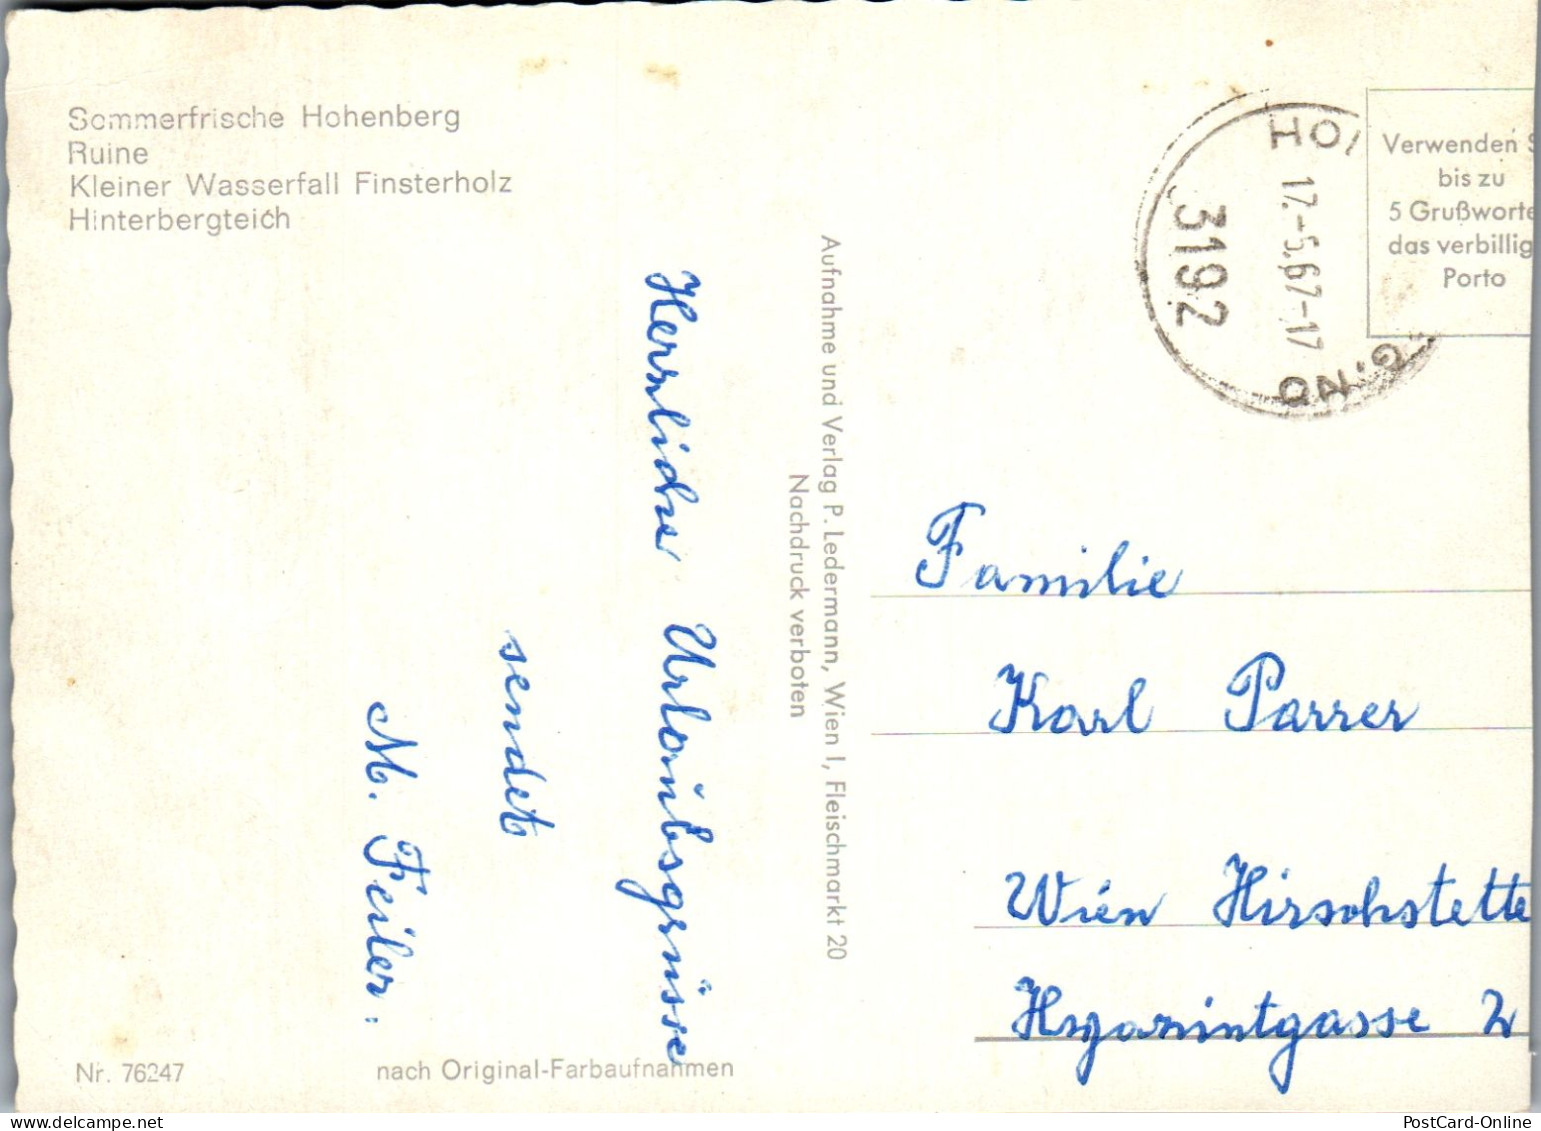 Sommerfrische Hohenberg
Ruine
Kleiner Wasserfall Finsterholz
Hinterbergteich
Herzliche Urlaubsgrüsse
sendet
M. Feiler.
Nr. 76247
nach Original-Farbaufnahmen
Aufnahme und Verlag P. Ledermann, Wien I, Fleischmarkt 20
Nachdruck verboten
HO
3192
17.-6.67-17
G. NÖ
Verwenden S
bis zu
5 Grußworte
das verbillig
Porto
Familie
Karl Parrer
Wien Hirschstette
Hyazintgasse 2
PostCard-Online
www.delcampe.net